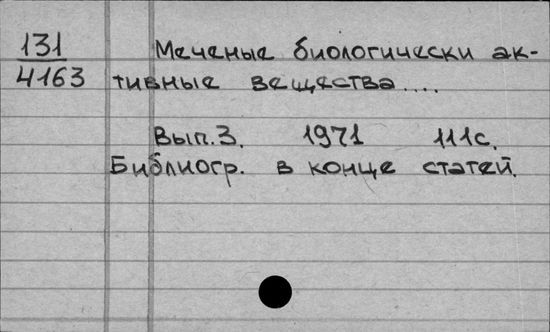 131
4163
Меченые биологически ак-
тивные вещества....
Вып.3. 1971 111с.
Библиогр. в конце статей.